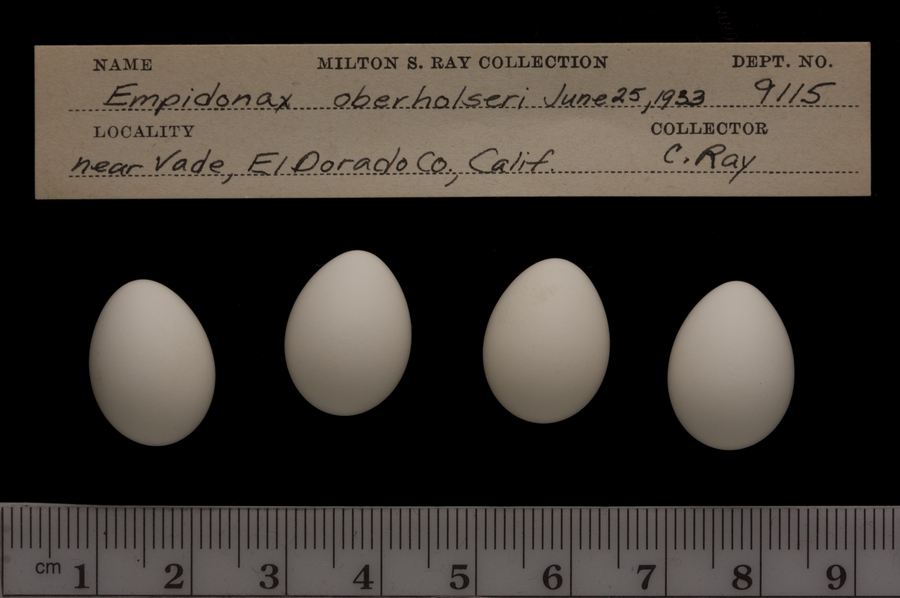 NAME MILTON S. RAY COLLECTION DEPT. NO.
Empidonax oberholseri June 25, 1933 9115
LOCALITY COLLECTOR
near Vade, El Dorado Co., Calif. C. Ray
cm 1 2 3 4 5 6 7 8 9